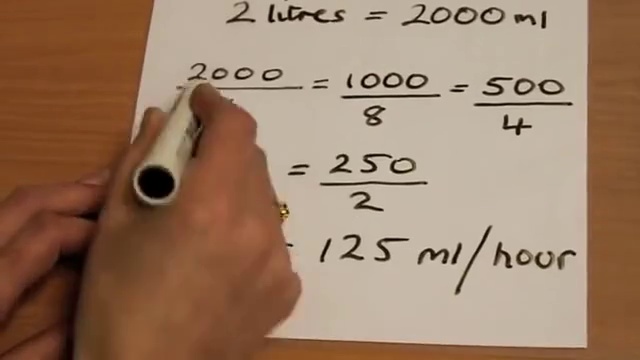 2 litres = 2000 ml
2000 = 1000/8 = 500/4
= 250/2
= 125 ml/hour